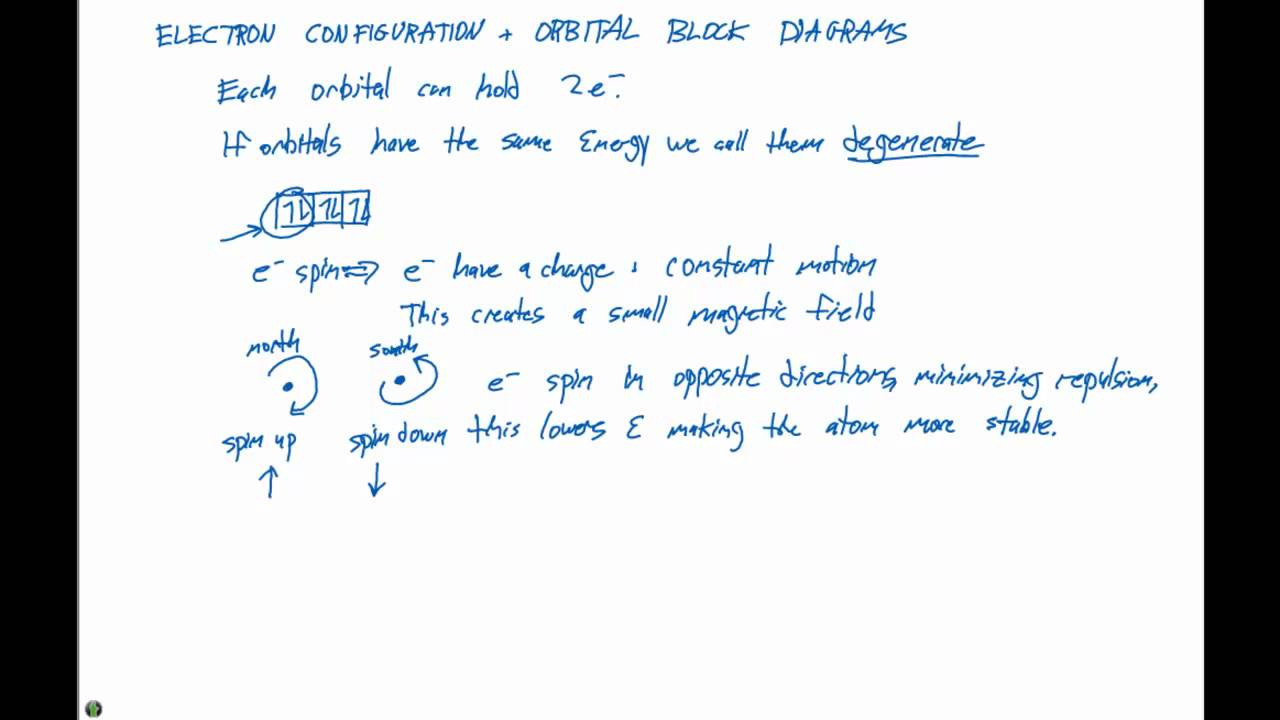 ELECTRON CONFIGURATION + ORBITAL BLOCK DIAGRAMS
Each orbital can hold 2e⁻.
If orbitals have the same Energy we call them degenerate
↑↓ ↑↓ ↑↓
e⁻ spin ⇒ e⁻ have a charge + constant motion
This creates a small magnetic field
north south
e⁻ spin in opposite directions, minimizing repulsion,
spin up spin down this lowers E making the atom more stable.
↑ ↓